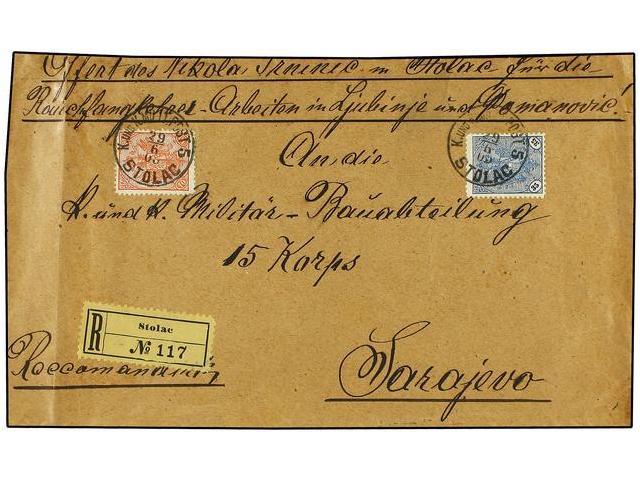 Offert des Nikola in Stolac für die
Rauchfangkehrer-Arbeiten in Ljubinje und Domanović.
K. und K. MILIT. POST 5
29
6
STOLAC
K. und K. MILIT. POST 5
29
6
STOLAC
An die
k. und k. Militär-Bauabteilung
15 Korps
R
Stolac
№ 117
Sarajevo